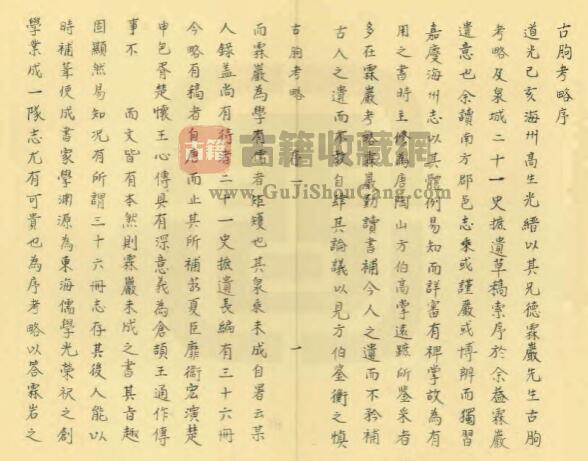 古朐考略序
道光己亥海州高生光縉以其兄德霖巖先生古朐
考略及泉城二十一史摭遺草稿索序於余蓋霖巖
遺意也余讀南方郡邑志乘或謹嚴或博辨而獨習
嘉慶海州志以其體例易知而詳審有裨掌故為有
用之書時主修為唐陶山方伯高掌遠蹠所鑒采者
多在霖巖考略霖巖勤讀書補今人之遺而不矜補
古人之遺而不敢自肆其論議以見方伯鑒衡之慎
古朐考略
序一
一
而霖巖為學有儒者矩矱也其泉乘未成自署云某
人錄蓋尚有待者二十一史摭遺長編有三十六冊
今略有稿者自唐而止其所補若夏臣靡衛宏演楚
申包胥楚懷王心傳具有深意義為倉頡王通作傳
事不 而文皆有本然則霖巖未成之書其旨趣
固顯然易知況有所謂三十六冊志存其後人能以
時補葺便成書家學淵源為東海儒學光榮祝之創
學業成一隊志尤有可貴也為序考略以答霖岩之
古籍
古籍收藏网
www.GuJiShouCang.com